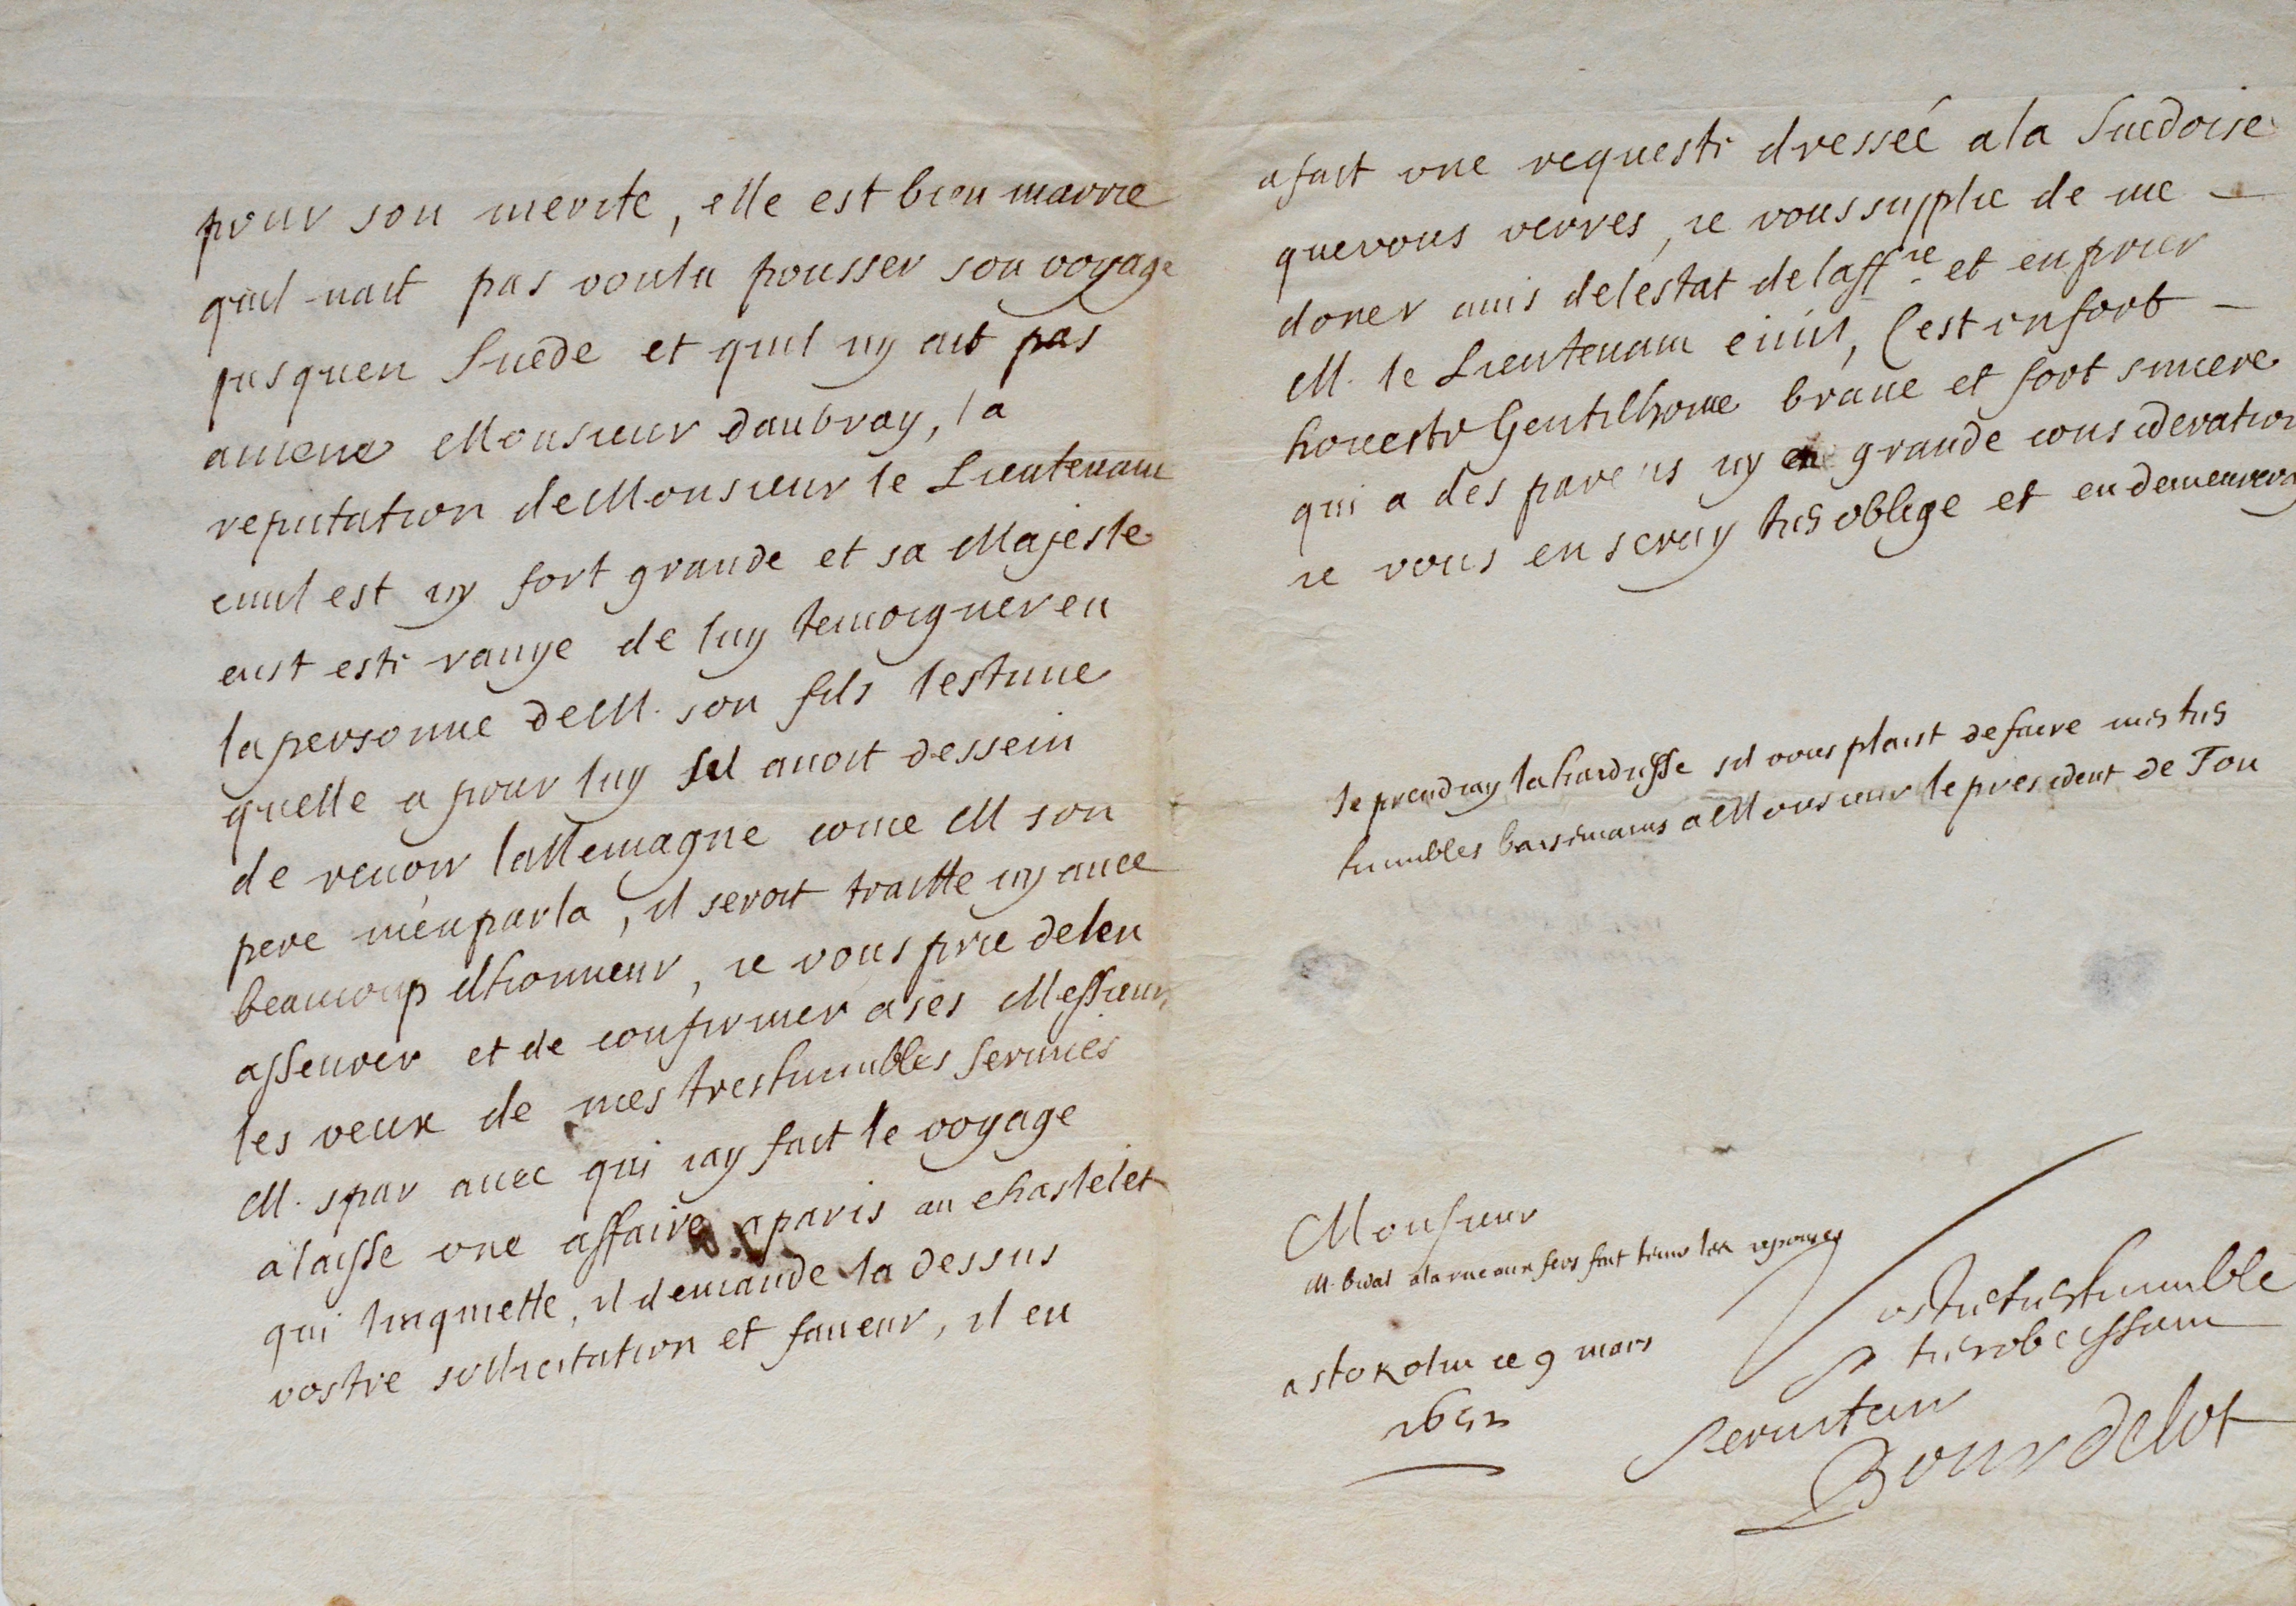 pour son merite, elle est bien marrie
quil nait pas voulu pousser son voyage
jusquen Suede et quil ny ait pas
amene Monsieur daubray, la
reputation de Monsieur le Lieutenant
ciuil est icy fort grande et sa Majeste
eust este rauye de luy temoigner en
la personne de M. son fils lestime
quelle a pour luy sil auoit dessein
de reuoir lallemagne come M son
pere m'en parla, il seroit traitte icy auec
beaucoup dhonneur, ie vous prie de len
asseurer et de confirmer a ses Messieurs
les veux de mes treshumbles seruices
M. spar auec qui iay fait le voyage
a laisse une affaire a paris au chastelet
qui linquiette, il demande la dessus
vostre sollicitation et faueur, il en
a fait une requeste dressée a la Suedoise
que vous verres, ie vous supplie de me
doner auis de lestat de laff.re et en prier
M. le Lieutenant ciuil, Cest un fort
honeste Gentilhome braue et fort sincere
qui a des parens icy en grande consideration
ie vous en seray tres oblige et en demeureray
Je prendray la hardiesse sil vous plaist de faire mes tres
humbles baisemains a Monsieur le president de Tou
Monsieur
M. bidal a la rue aux fers fait tenir les reponses
vostre treshumble
& tresobeissant
seruiteur
Bourdelot
a stokolm ce 9 mars
1652